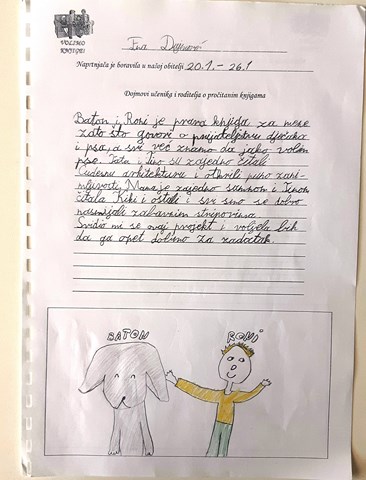 VOLIMO
KNJIGE!
Naprtnjača je boravila u našoj obitelji 20.1. - 26.1
Dojmovi učenika i roditelja o pročitanim knjigama
Baton i Roni je prava knjiga za mene
zato što govori o prijateljstvu dječaka
i psa, a svi već znamo da jako volim
pse. Tata i Tino su zajedno čitali
Čudesnu arhitekturu i otkrili puno zani-
mljivosti. Mama je zajedno samnom i Tinom
čitala Kiki i ostali i svi smo se dobro
nasmijali zabavnim stripovima.
Svidio mi se ovaj projekt i voljela bih
da ga opet dobimo za zadatak.
BATON RONI